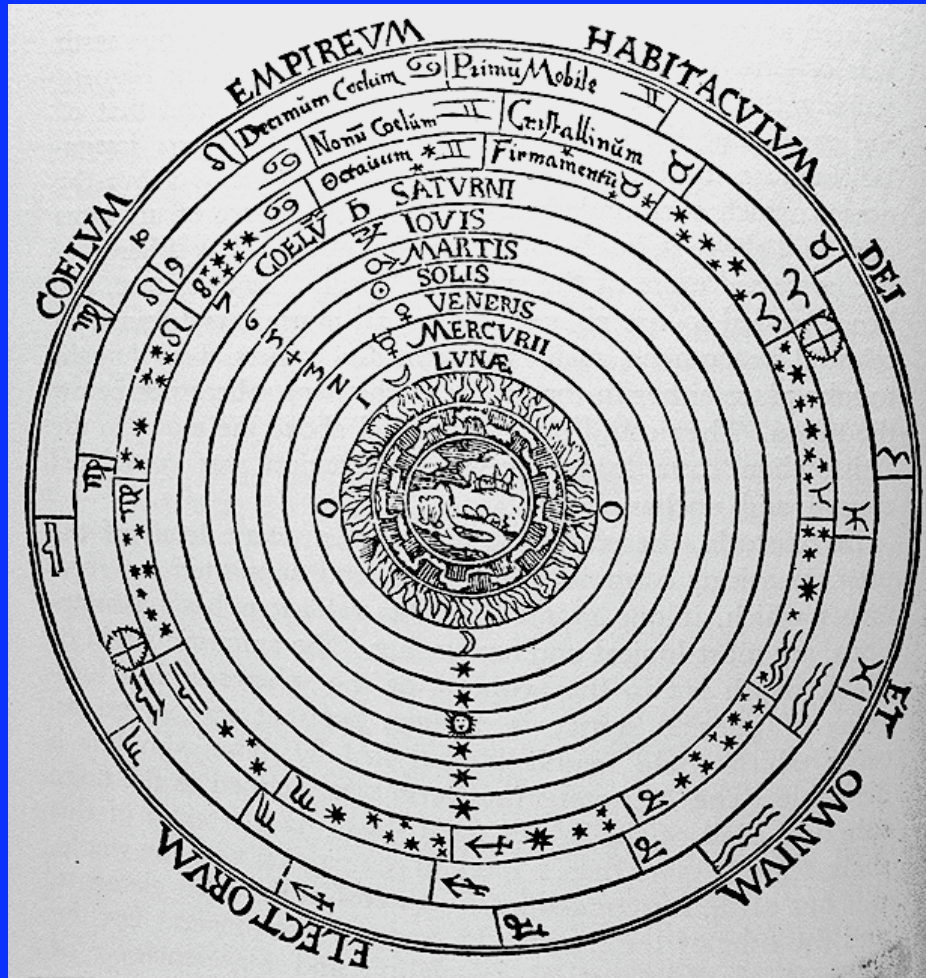 COELVM EMPIREVM HABITACVLVM DEI ET OMNIVM ELECTORVM
10 Decimum Coelum Primū Mobile
9 Nonū Coelūm Cristallinūm
8 Octauum Firmamentū
7 COELV̄ SATVRNI
6 IOVIS
5 MARTIS
4 SOLIS
3 VENERIS
2 MERCVRII
1 LVNÆ